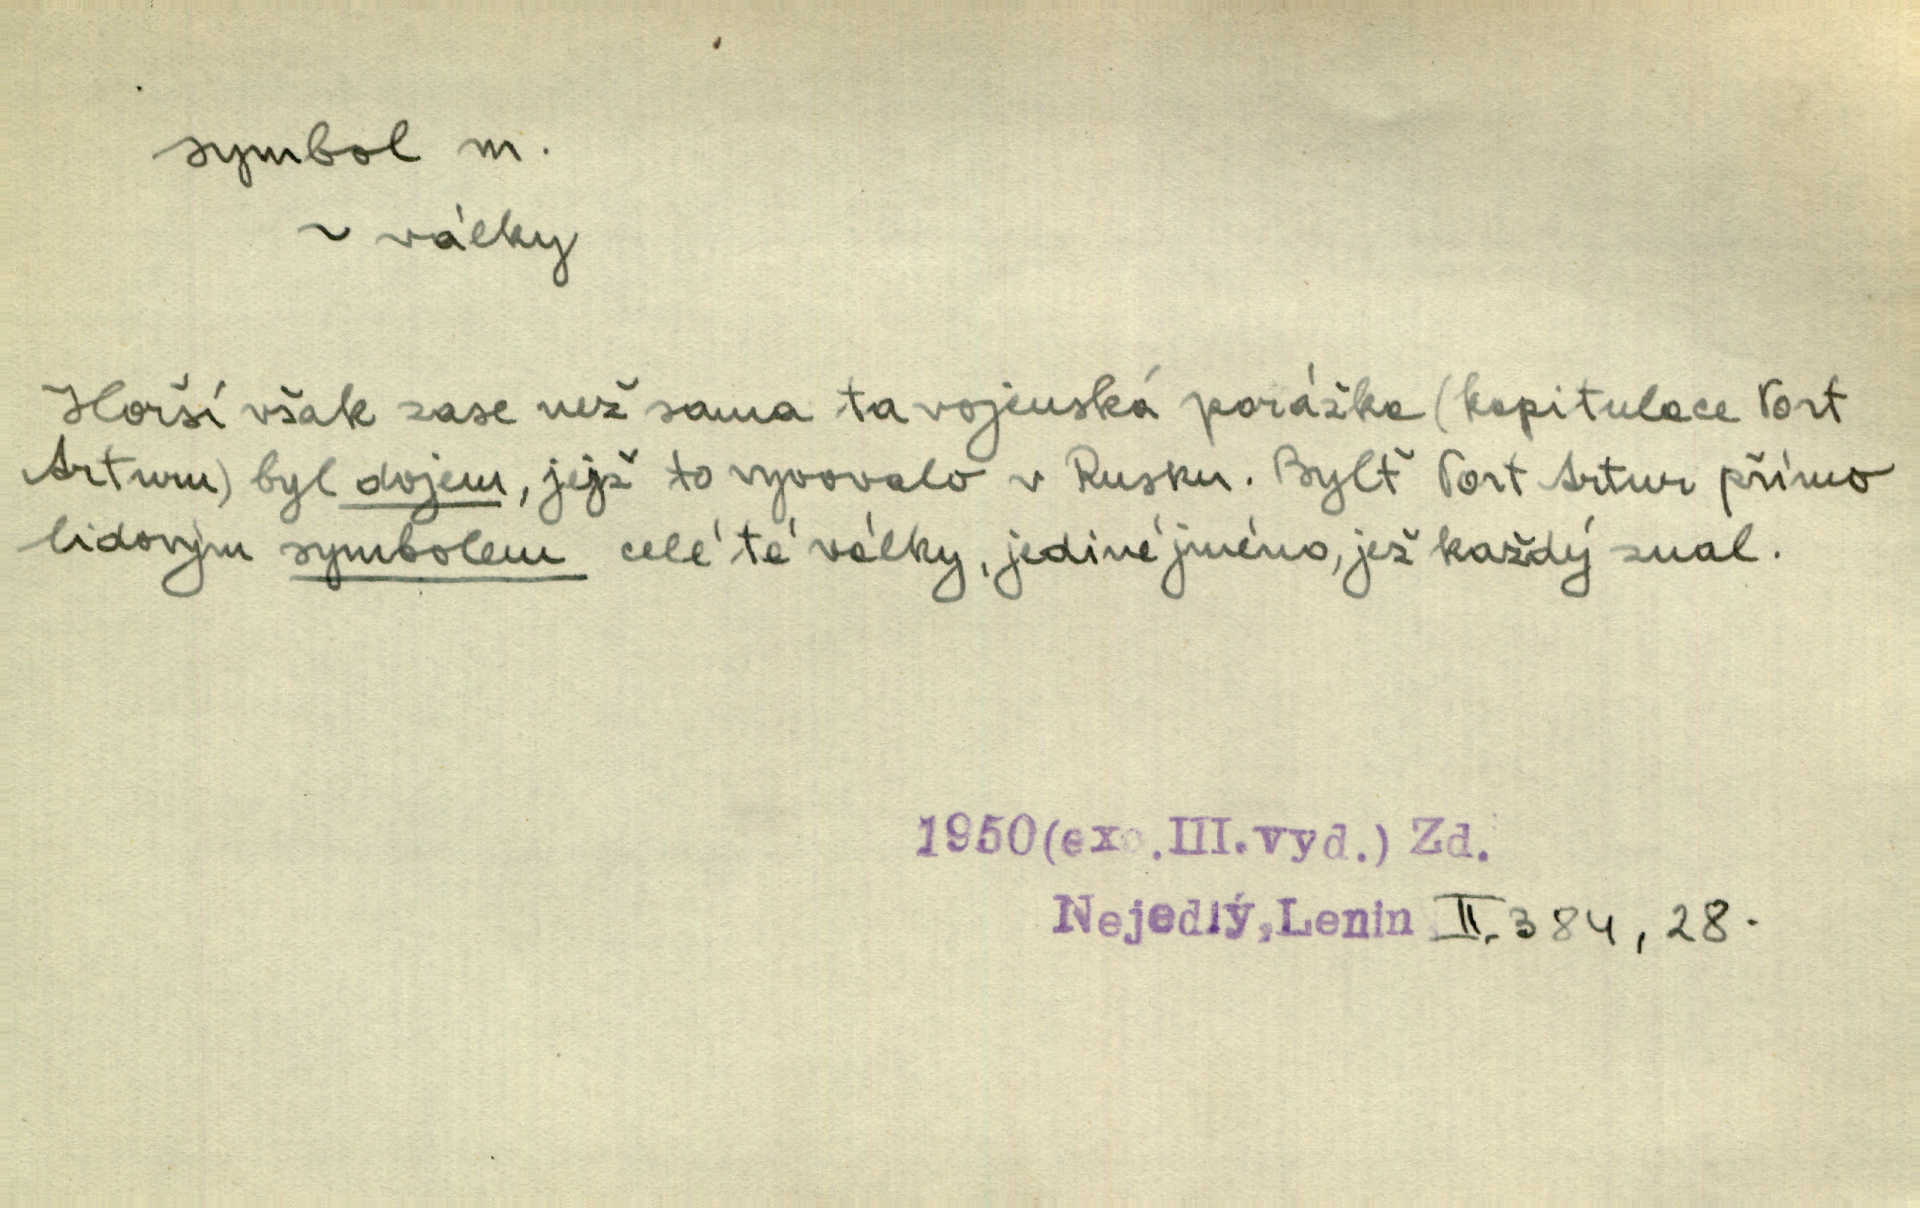 symbol m.
~ války
Horší však zase než sama ta vojenská porážka (kapitulace Port
Arturu) byl dojem, jejž to vyvovalo v Rusku. Bylť Port Artur přímo
lidovým symbolem celé té války, jediné jméno, jež každý znal.
1950(exc.III.vyd.) Zd.
Nejedlý,Lenin II.384, 28.